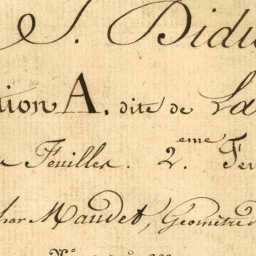 S. Didi
tion A. dite de La
Feuilles. 2.eme Feu
par Maudet, Geometre